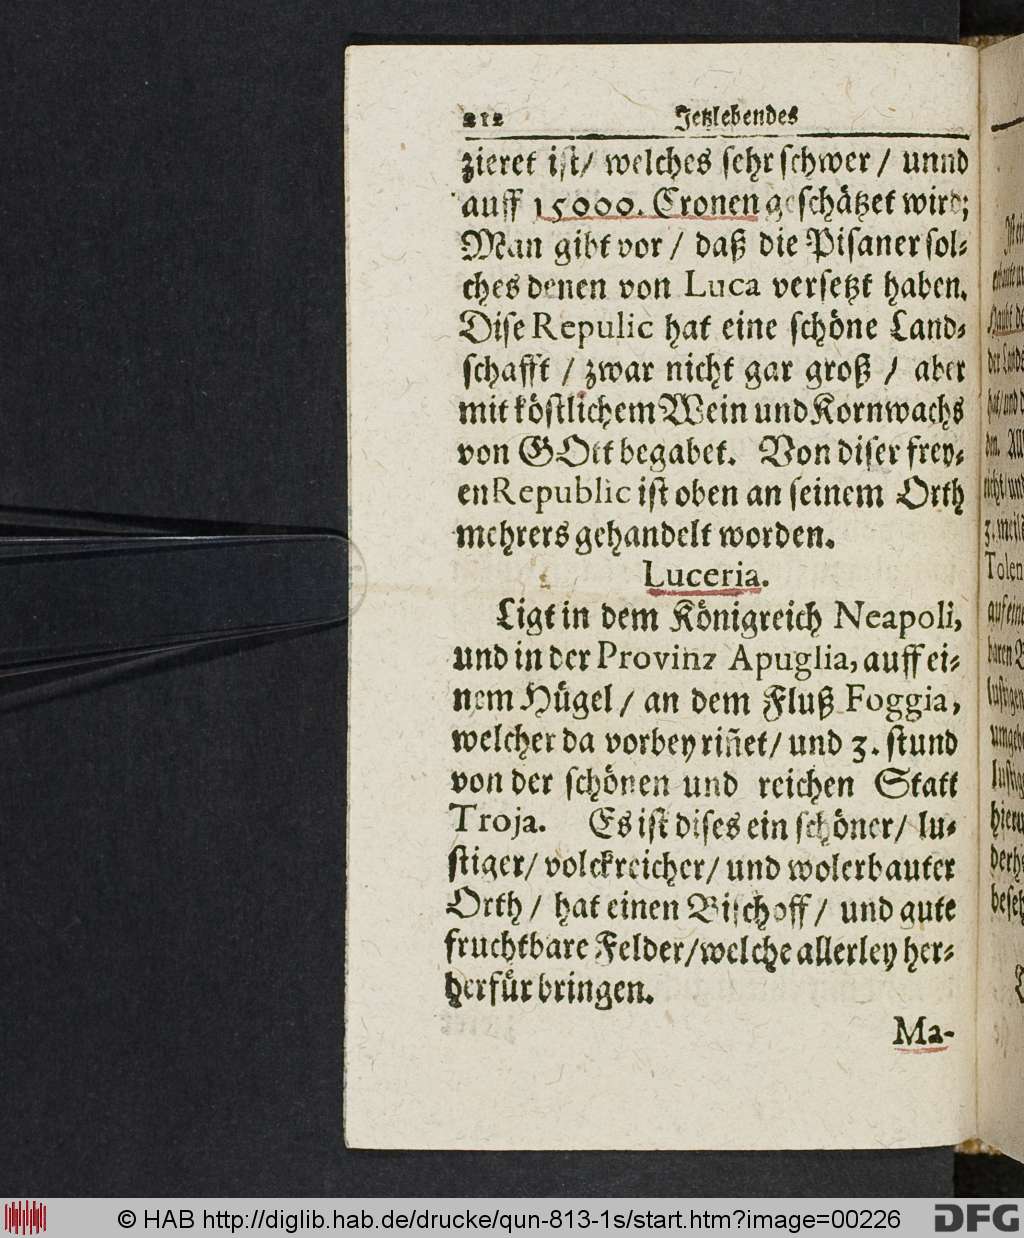 212 Jetzlebendes
zieret ist/ welches sehr schwer / unnd
auff 15000. Cronen geschätzet wird;
Man gibt vor / daß die Pisaner sol-
ches denen von Luca versetzt haben.
Dise Repulic hat eine schöne Land-
schafft / zwar nicht gar groß / aber
mit köstlichem Wein und Kornwachs
von GOtt begabet. Von diser frey-
en Republic ist oben an seinem Orth
mehrers gehandelt worden.
Luceria.
Ligt in dem Königreich Neapoli,
und in der Provinz Apuglia, auff ei-
nem Hügel / an dem Fluß Foggia,
welcher da vorbey riñet/ und 3. stund
von der schönen und reichen Statt
Troja. Es ist dises ein schöner/ lu-
stiger/ volckreicher/ und wolerbauter
Orth / hat einen Bischoff / und gute
fruchtbare Felder/welche allerley her-
herfür bringen.
Ma-
© HAB http://diglib.hab.de/drucke/qun-813-1s/start.htm?image=00226
DFG